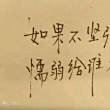 如果不坚强
懦弱给谁